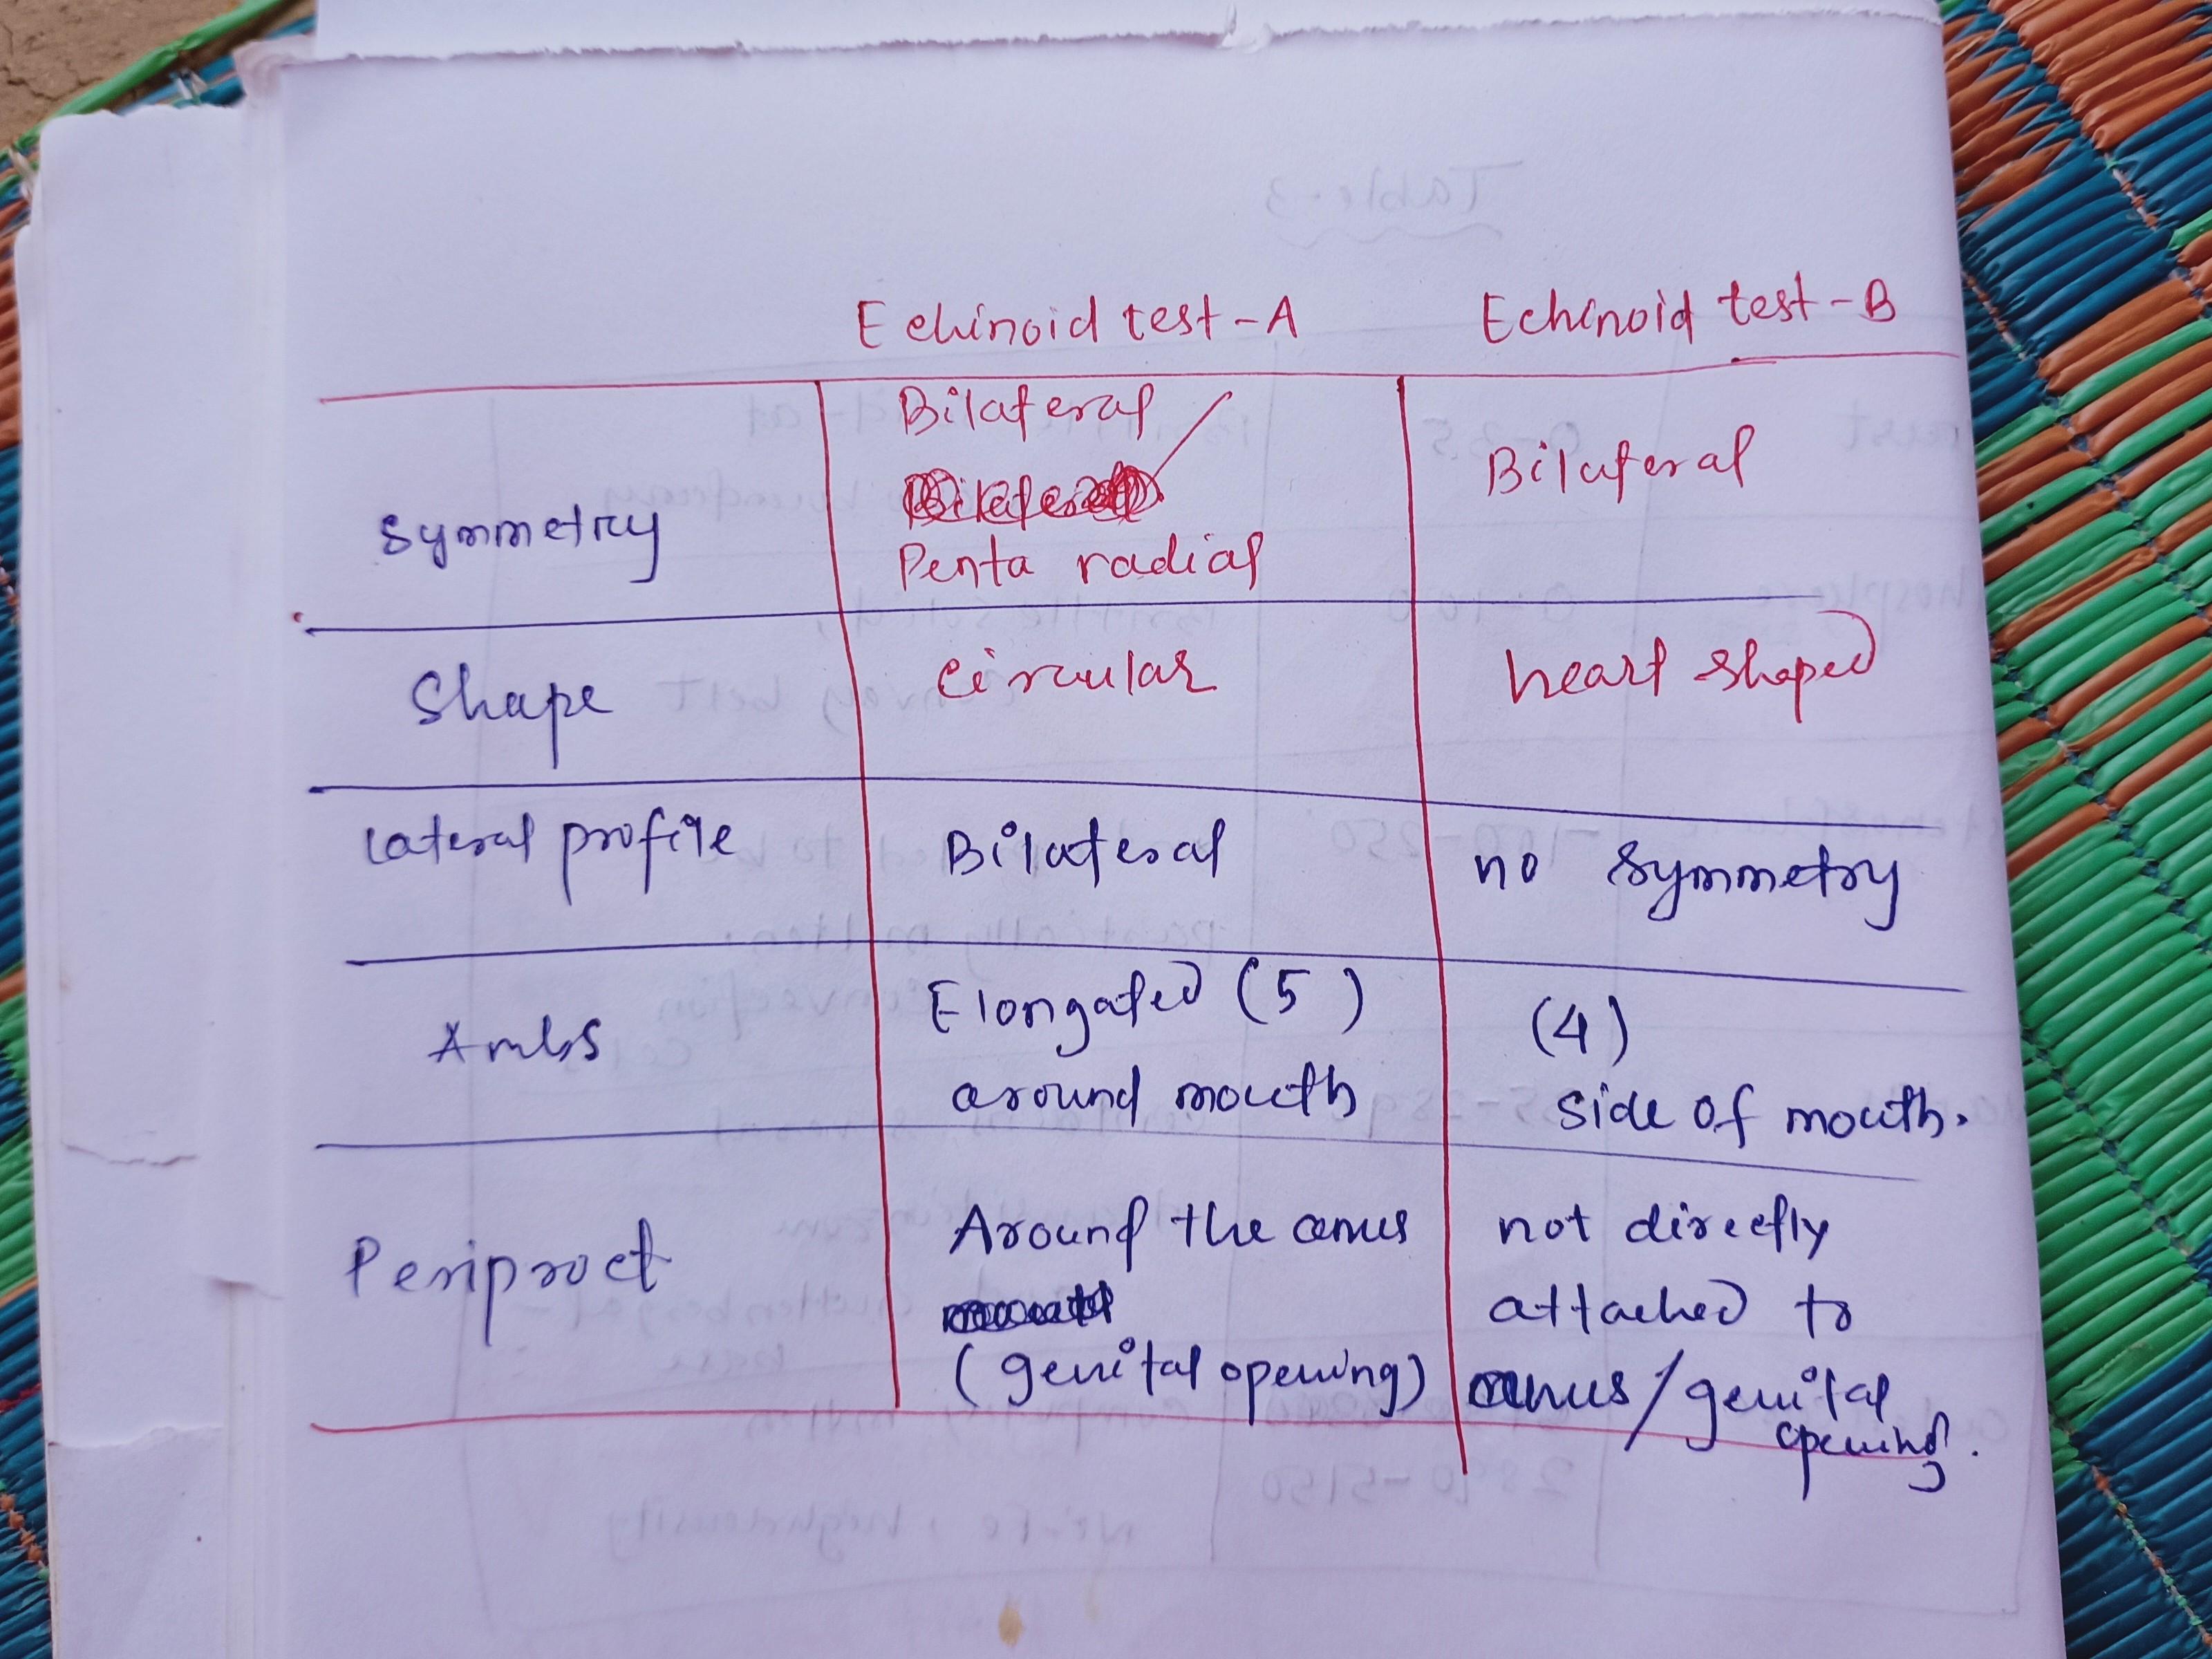 Echinoid test-A Echinoid test-B
Bilateral
Symmetry Penta radial Bilateral
Shape circular heart shaped
Lateral profile Bilateral no symmetry
Ambs Elongated (5) (4)
around mouth side of mouth.
Periproct Around the anus not directly
attached to
(genital opening) anus/genital
opening.
Table-3